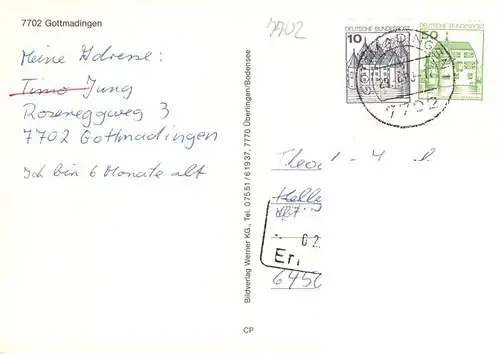 7702 Gottmadingen
Meine Adresse:
Timo Jung
Roseneggweg 3
7702 Gottmadingen
Ich bin 6 Monate alt
Bildverlag Werner KG., Tel. 07551/61937, 7770 Überlingen/Bodensee
CP
7702
DEUTSCHE BUNDESPOST
10
DEUTSCHE BUNDESPOST
50
GOTTMADINGEN 1
7702
02
6450